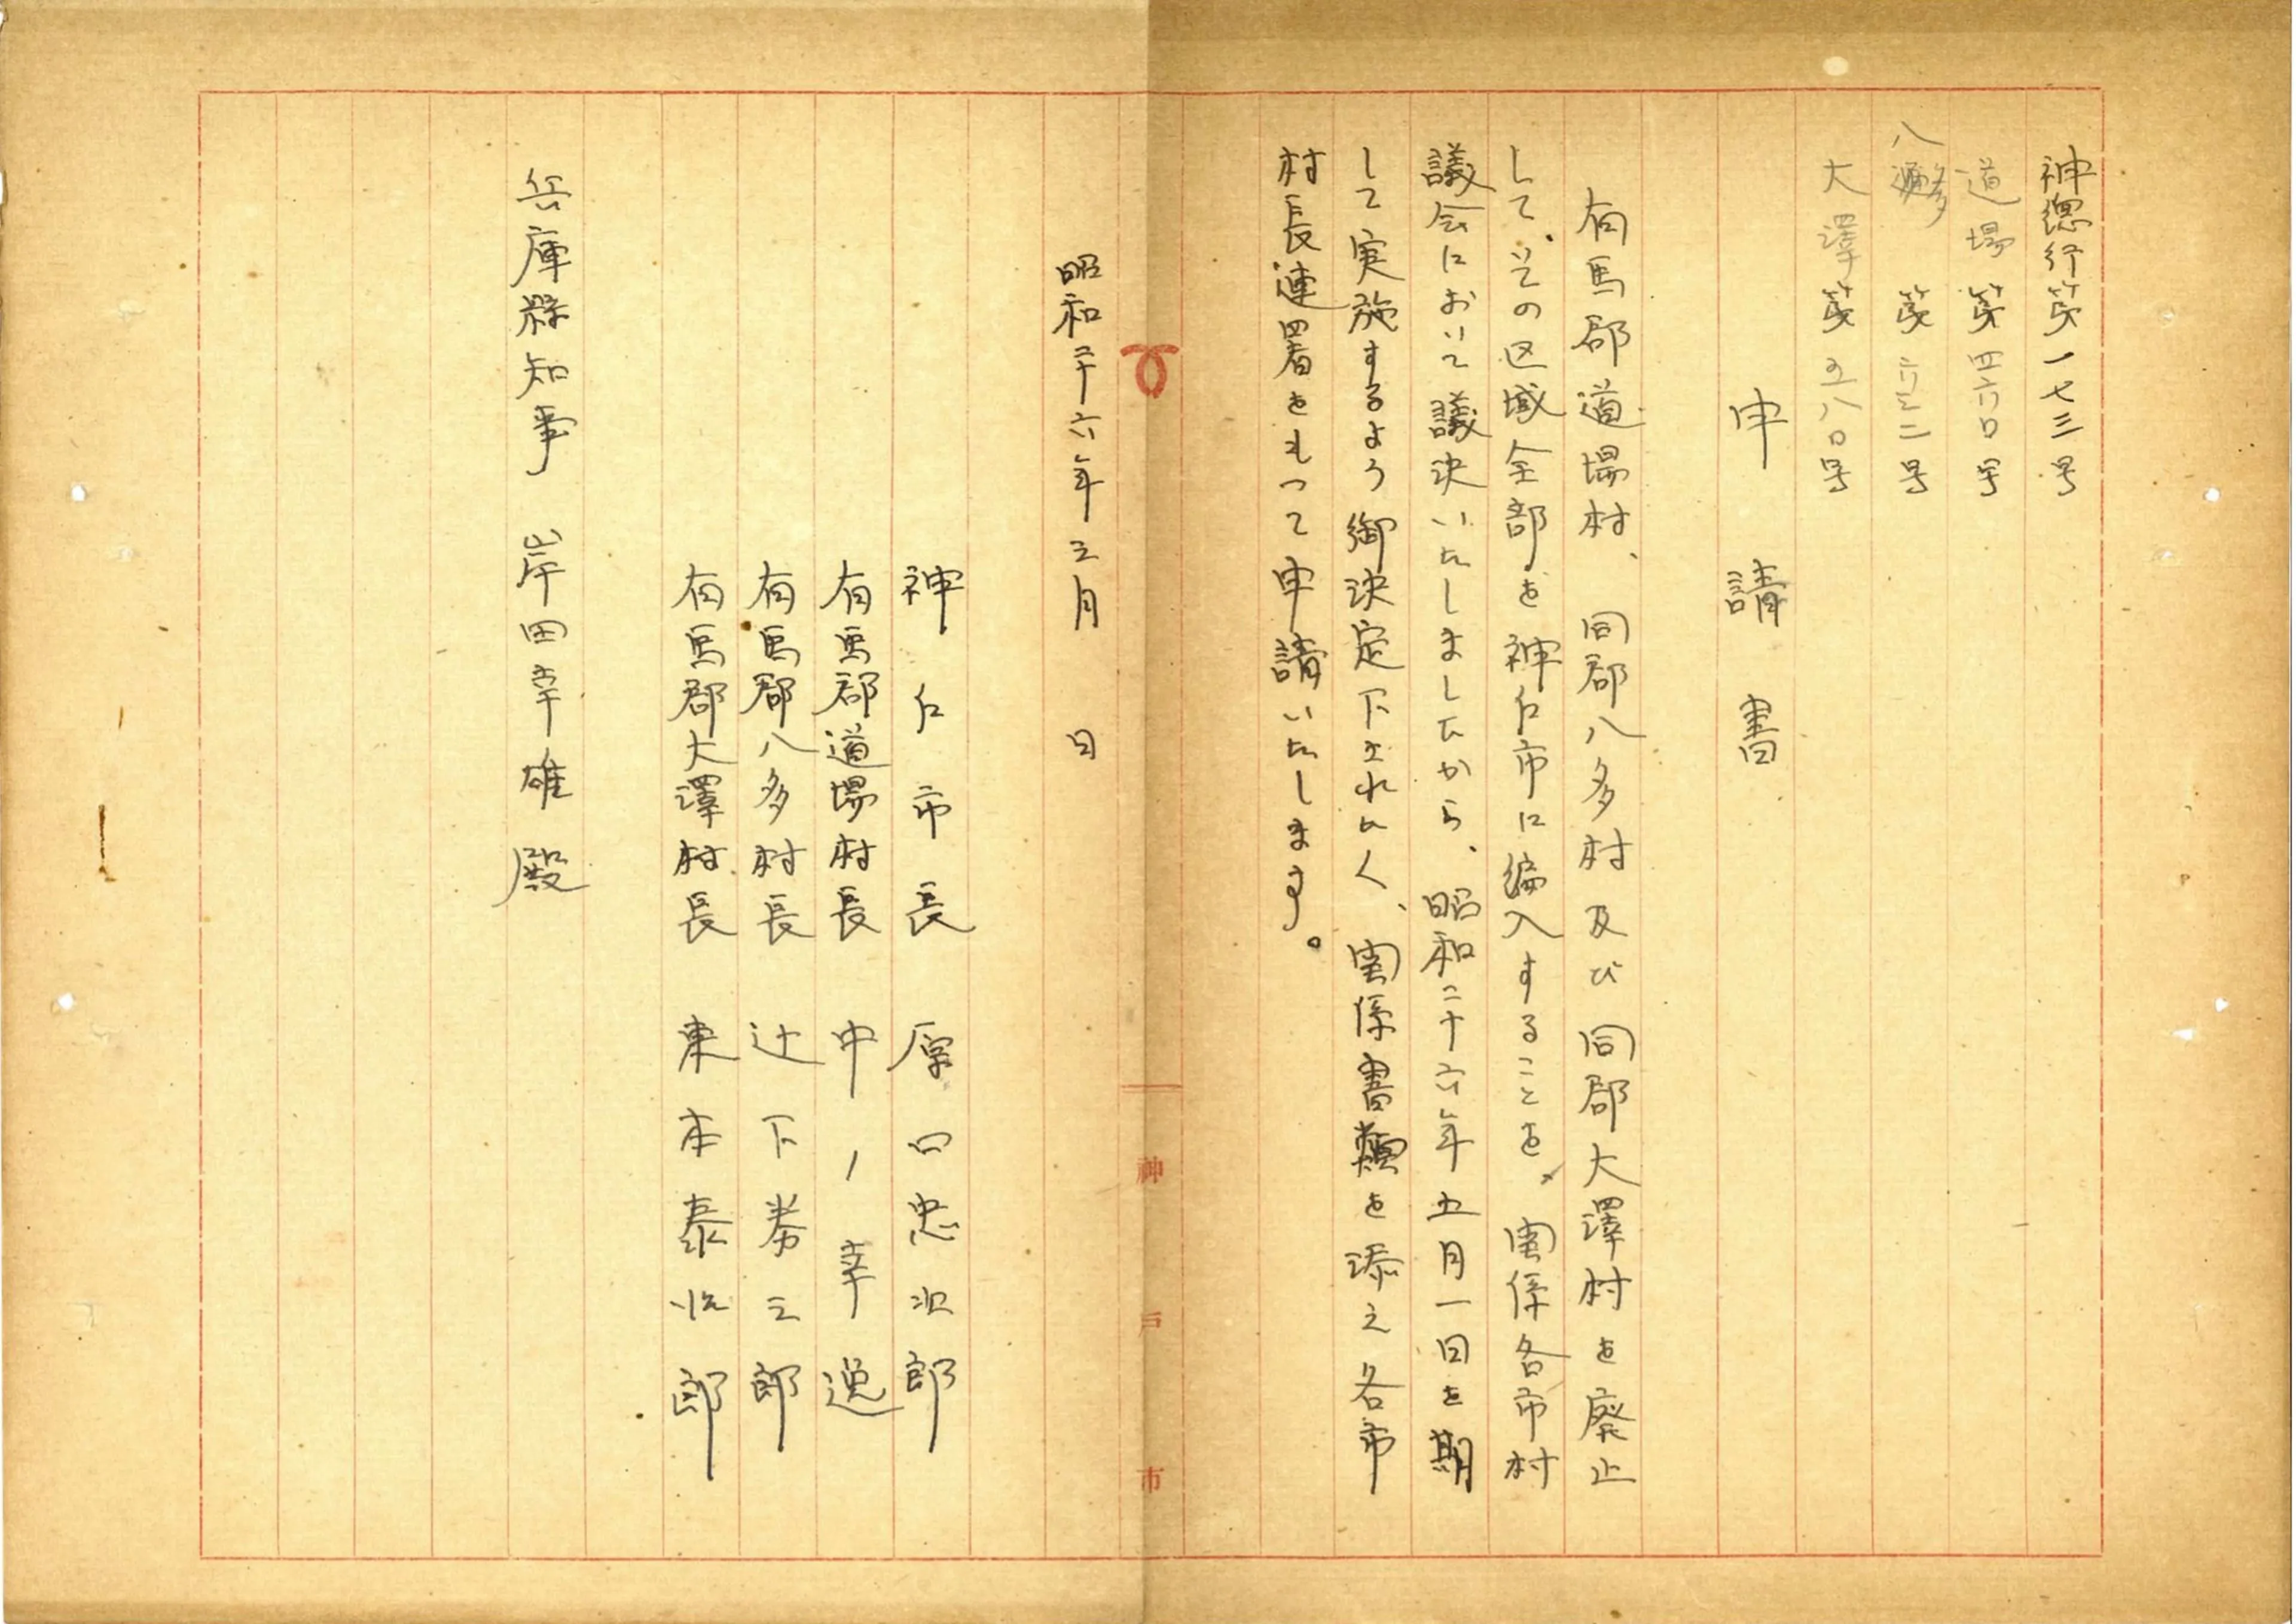 神總行第一七三号
道場第四六〇号
八多第六三二号
大澤第五八〇号
申請書
有馬郡道場村、同郡八多村及び同郡大澤村を廃止
して、その区域全部を神戸市に編入することを、関係各市村
議会において議決いたしましたから、昭和二十六年五月一日を期
して実施するよう御決定下されたく、関係書類を添え各市
村長連署をもって申請いたします。
昭和二十六年三月　日
神戸市長　原口忠次郎
有馬郡道場村長　中ノ幸逸
有馬郡八多村長　辻下劵三郎
有馬郡大澤村長　東本泰治郎
兵庫縣知事　岸田幸雄殿
神戸市